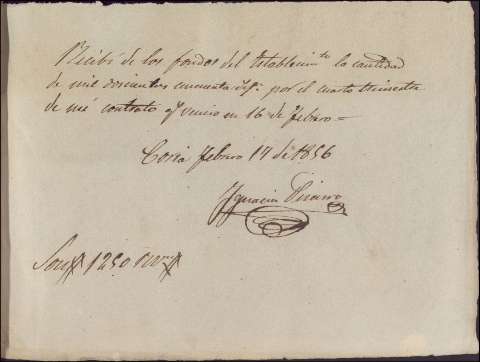 Recibí de los fondos del Establecim.to la cantidad
de mil doscientos cincuenta r.s por el cuarto trimestre
de mi contrato q.e vencio en 16 de Febrero =
Coria Febrero 17 de 1856
Ignacio
Son 1250 r.v.n